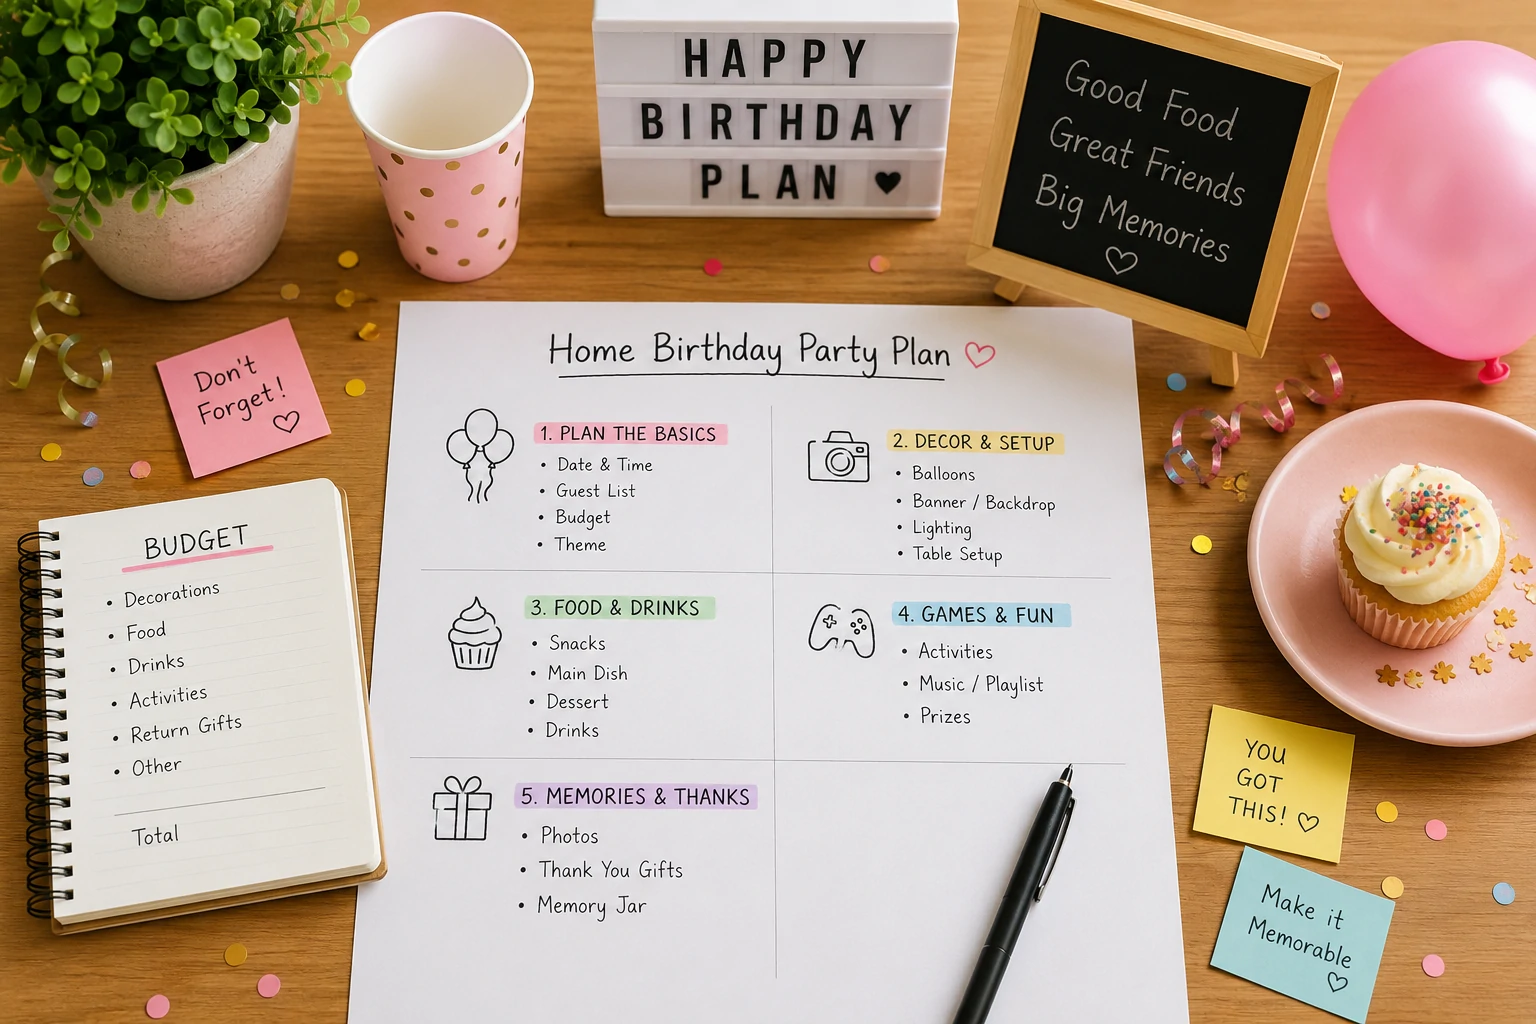 HAPPY
BIRTHDAY
PLAN ♥
Good Food
Great Friends
Big Memories
♡
Don't
Forget!
♡
Home Birthday Party Plan ♡
1. PLAN THE BASICS
• Date & Time
• Guest List
• Budget
• Theme
2. DECOR & SETUP
• Balloons
• Banner / Backdrop
• Lighting
• Table Setup
3. FOOD & DRINKS
• Snacks
• Main Dish
• Dessert
• Drinks
4. GAMES & FUN
• Activities
• Music / Playlist
• Prizes
5. MEMORIES & THANKS
• Photos
• Thank You Gifts
• Memory Jar
BUDGET
• Decorations
• Food
• Drinks
• Activities
• Return Gifts
• Other
Total
YOU
GOT
THIS! ♡
Make it
Memorable
♡